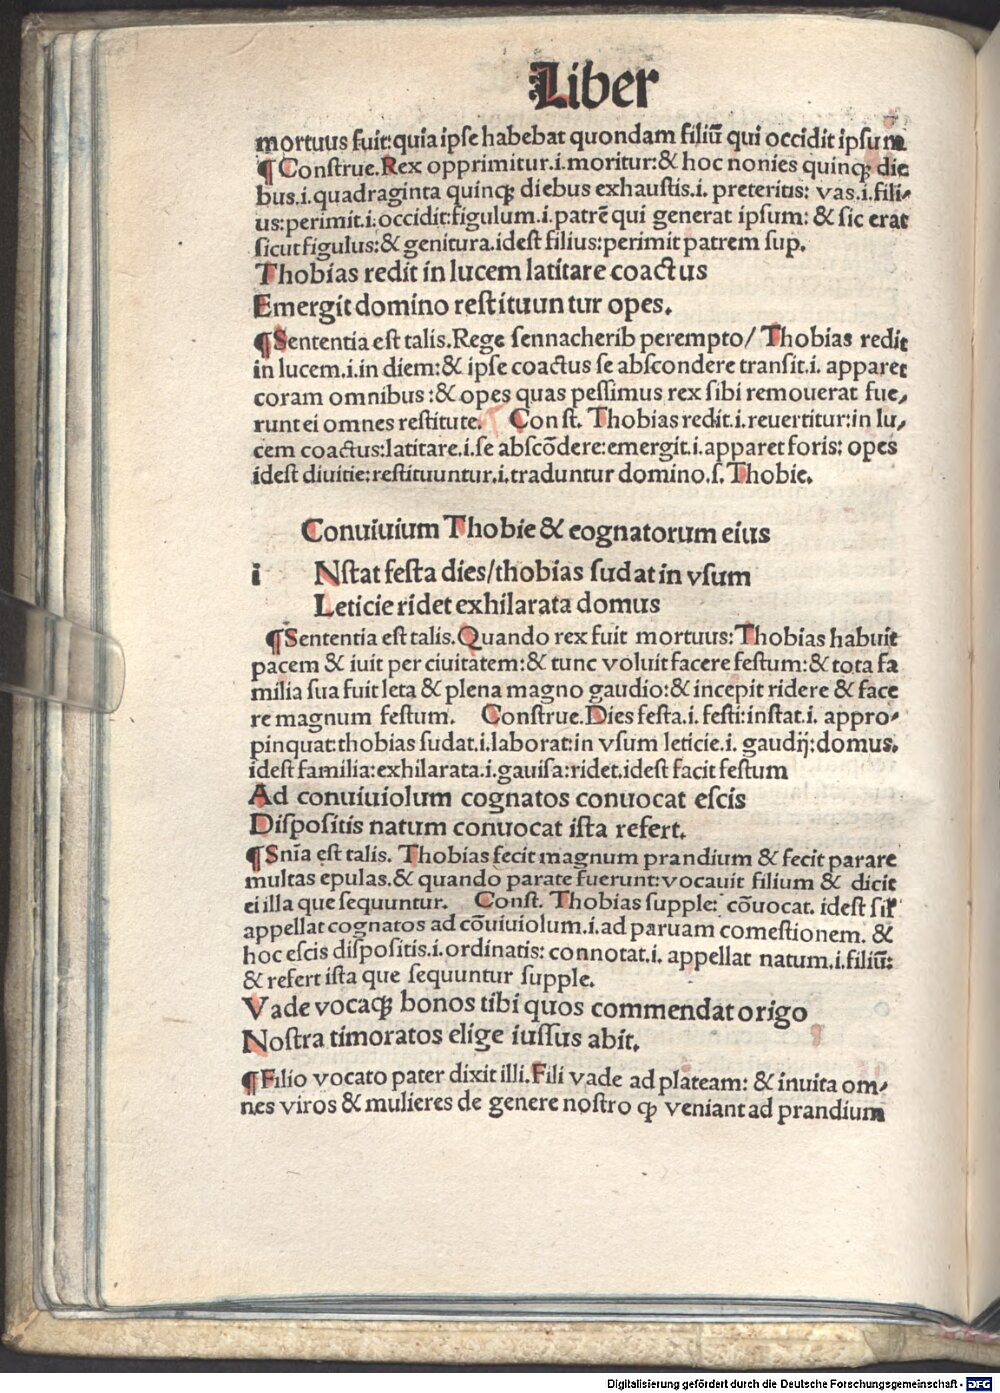 Liber
mortuus fuit:quia ipse habebat quondam filiū qui occidit ipsum
¶ Construe.Rex opprimitur.i.moritur:& hoc nonies quinqꝫ die
bus.i.quadraginta quinqꝫ diebus exhaustis.i. preteritis: vas.i.fili-
us:perimit.i.occidit:figulum.i.patrē qui generat ipsum: & sic erat
sicut figulus:& genitura.idest filius:perimit patrem sup.
Thobias redit in lucem latitare coactus
Emergit domino restituuntur opes.
¶Sententia est talis.Rege sennacherib perempto/ Thobias redit
in lucem.i.in diem:& ipse coactus se abscondere transit.i. apparet
coram omnibus :& opes quas pessimus rex sibi remouerat fue,
runt ei omnes restitute. Const. Thobias redit.i.reuertitur:in lu,
cem coactus:latitare.i.se abscōdere:emergit.i.apparet foris: opes
idest diuitie:restituuntur.i.traduntur domino.s. Thobie.
Conuiuium Thobie & cognatorum eius
i NStat festa dies/thobias sudat in vsum
Leticie ridet exhilarata domus
¶Sententia est talis.Quando rex fuit mortuus:Thobias habuit
pacem & iuit per ciuitatem:& tunc voluit facere festum:& tota fa
milia sua fuit leta & plena magno gaudio:& incepit ridere & face
re magnum festum. Construe.Dies festa.i. festi:instat.i. appro-
pinquat:thobias sudat.i.laborat:in vsum leticie.i. gaudij:domus.
idest familia:exhilarata.i.gauisa:ridet.idest facit festum
Ad conuiuiolum cognatos conuocat escis
Dispositis natum conuocat ista refert.
¶Snīa est talis. Thobias fecit magnum prandium & fecit parare
multas epulas.& quando parate fuerunt:vocauit filium & dicit
ei illa que sequuntur. Const. Thobias supple: cōuocat. idest sil'
appellat cognatos ad cōuiuiolum.i.ad paruam comestionem. &
hoc escis dispositis.i.ordinatis: connotat.i. appellat natum.i.filiū:
& refert ista que sequuntur supple.
Vade vocaqꝫ bonos tibi quos commendat origo
Nostra timoratos elige iussus abit.
¶Filio vocato pater dixit illi.Fili vade ad plateam: & inuita om,
nes viros & mulieres de genere nostro ꝙ veniant ad prandium
Digitalisierung gefördert durch die Deutsche Forschungsgemeinschaft - DFG